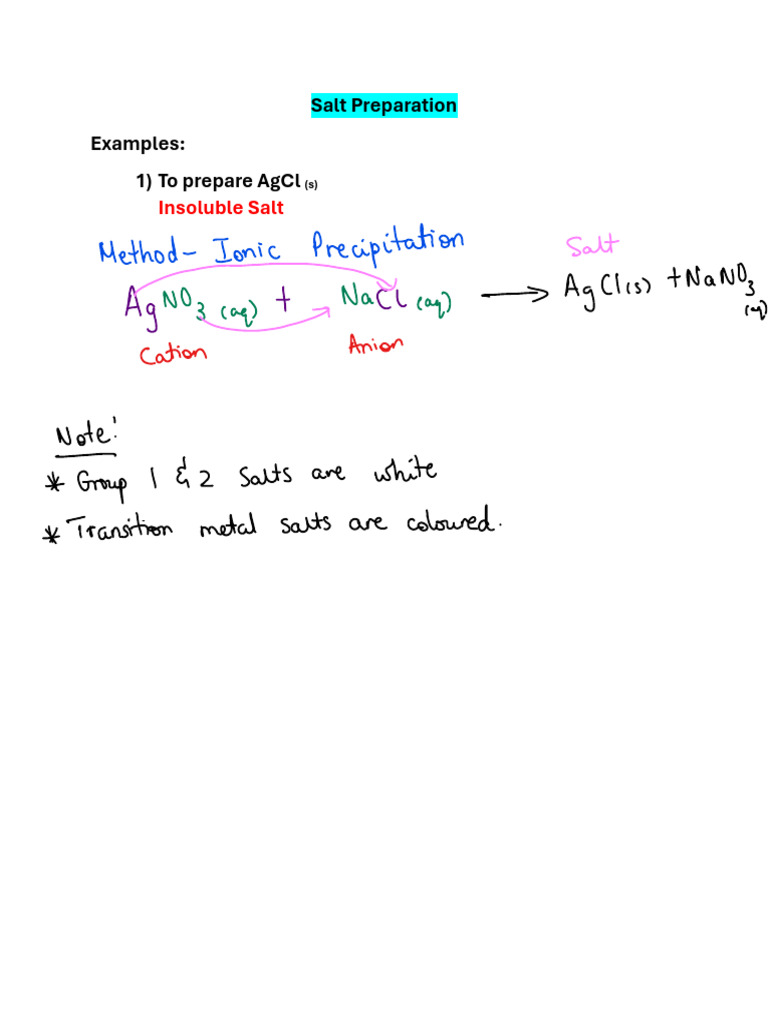 Salt Preparation
Examples:
1) To prepare AgCl (s)
Insoluble Salt
Method - Ionic Precipitation
Salt
AgNO3 (aq) + NaCl (aq) → AgCl(s) + NaNO3 (aq)
Cation Anion
Note:
* Group 1 & 2 Salts are white
* Transition metal salts are coloured.